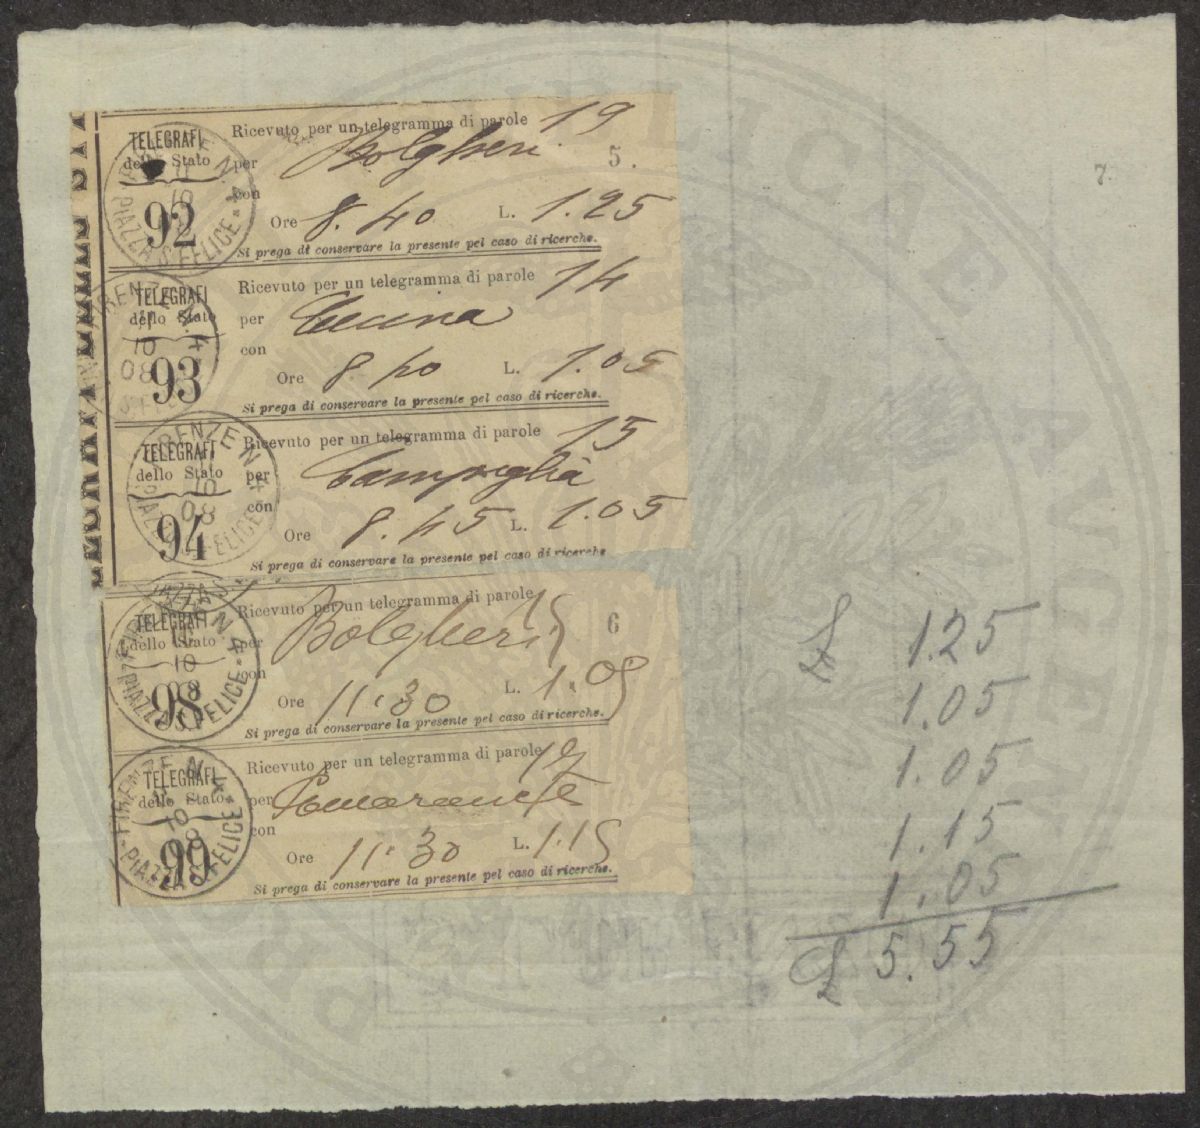 7.
TELEGRAFI
dello Stato
92
Ricevuto per un telegramma di parole 19
per Bolgheri 5.
con
Ore 8.40 L. 1.25
Si prega di conservare la presente pel caso di ricerche.
FIRENZE
PIAZZA S. FELICE
TELEGRAFI
dello Stato
93
Ricevuto per un telegramma di parole 14
per Cecina
con
Ore 8.40 L. 1.05
Si prega di conservare la presente pel caso di ricerche.
TELEGRAFI
dello Stato
94
Ricevuto per un telegramma di parole 15
per Campiglia
con
Ore 8.45 L. 1.05
Si prega di conservare la presente pel caso di ricerche
TELEGRAFI
dello Stato
98
Ricevuto per un telegramma di parole 15
per Bolgheri 6
con
Ore 11.30 L. 1.05
Si prega di conservare la presente pel caso di ricerche.
TELEGRAFI
dello Stato
99
Ricevuto per un telegramma di parole 17
per Pomarance
con
Ore 11.30 L. 1.15
Si prega di conservare la presente pel caso di ricerche.
£ 1.25
1.05
1.05
1.15
1.05
£ 5.55